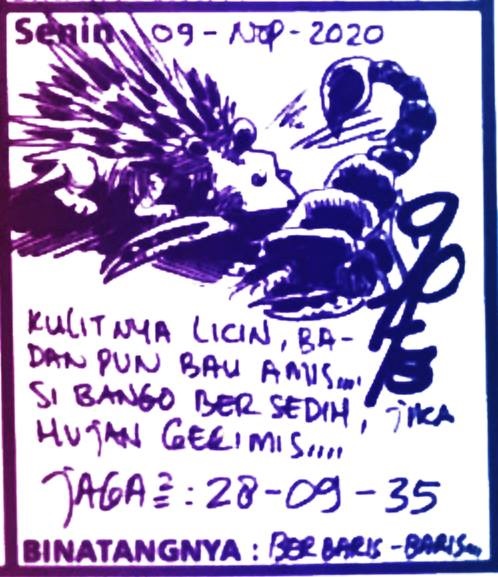 Senin 09-NOP-2020
KULITNYA LICIN, BA-
DAN PUN BAU AMIS....
SI BANGO BERSEDIH, JIKA
HUJAN GERIMIS....
JAGA2 : 28-09-35
BINATANGNYA : BERBARIS-BARIS...